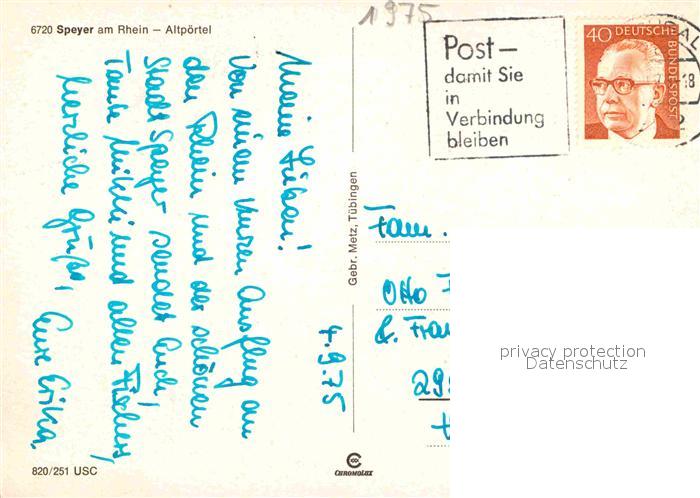 1975
6720 Speyer am Rhein – Altpörtel
Post –
damit Sie
in
Verbindung
bleiben
40 DEUTSCHE
BUNDESPOST
4.9.75
Meine Lieben!
Von einem kurzen Ausflug an
den Rhein und der schönen
Stadt Speyer sendet Euch,
Tante und allen Fischers,
herzliche Grüße,
Eure Erika.
Gebr. Metz, Tübingen
Fam.
Otto
& Frau
29
privacy protection
Datenschutz
820/251 USC
CHROMOLUX